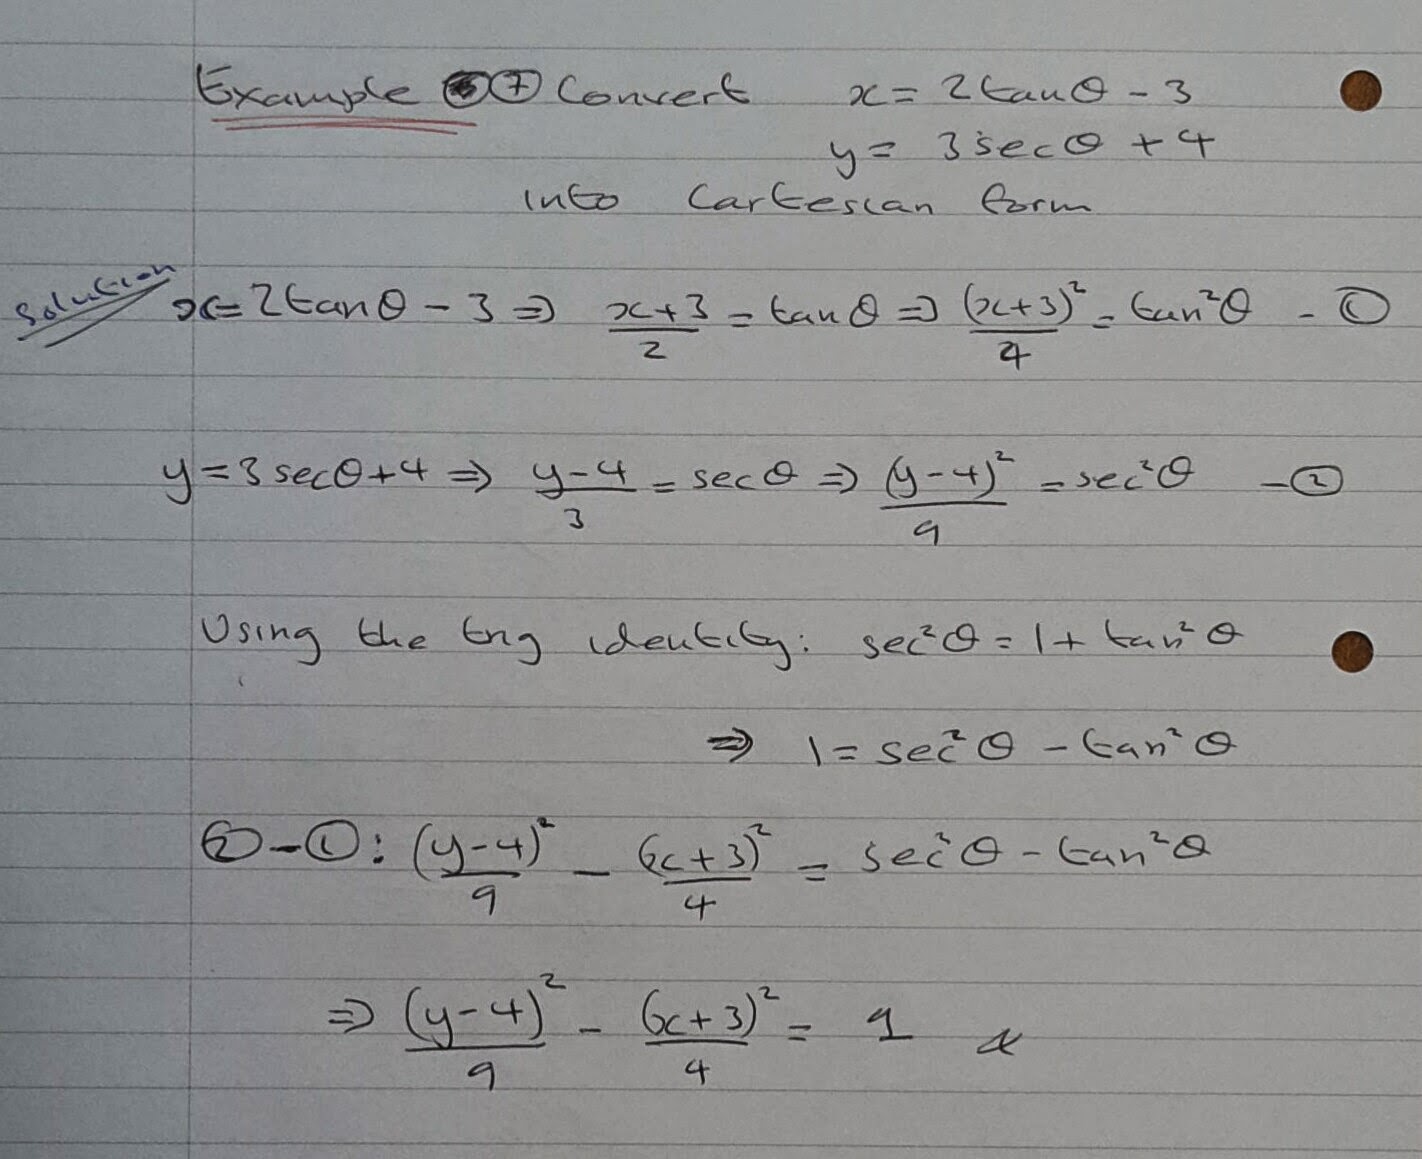 Example ⑦ Convert x = 2tanθ - 3
y = 3secθ + 4
into Cartesian form
Solution x = 2tanθ - 3 ⇒ (x+3)/2 = tanθ ⇒ (x+3)²/4 = tan²θ - ①
y = 3secθ + 4 ⇒ (y-4)/3 = secθ ⇒ (y-4)²/9 = sec²θ - ②
Using the trig identity: sec²θ = 1 + tan²θ
⇒ 1 = sec²θ - tan²θ
② - ①: (y-4)²/9 - (x+3)²/4 = sec²θ - tan²θ
⇒ (y-4)²/9 - (x+3)²/4 = 1